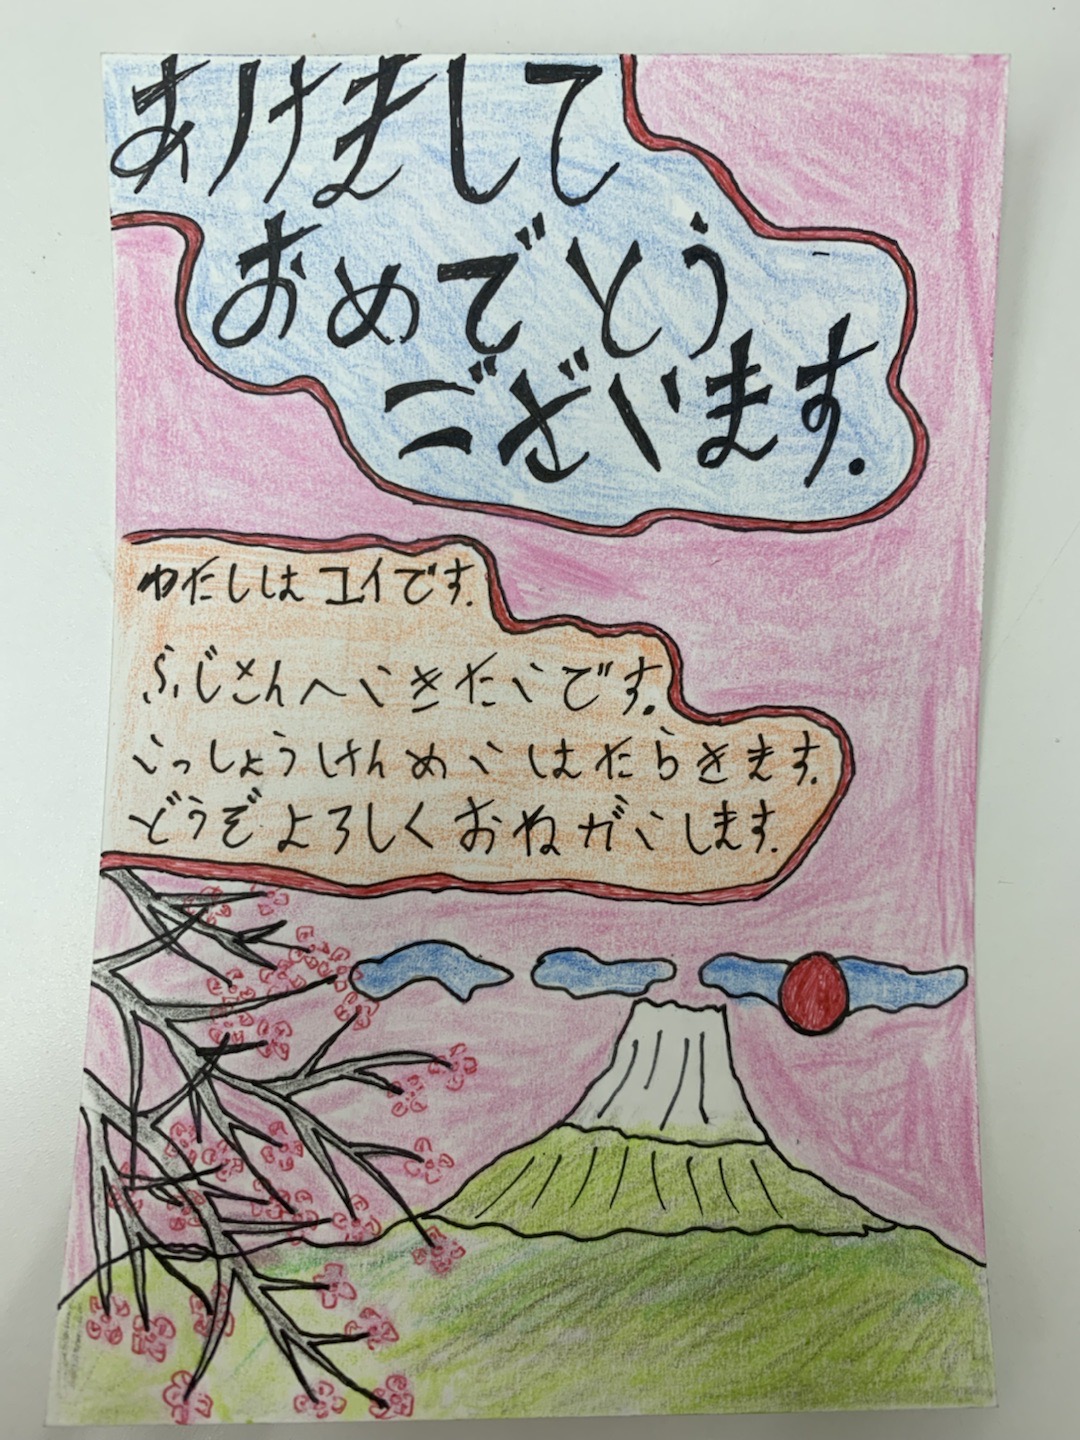 あけまして
おめでとう
ございます.
わたしは ユイです.
ふじさんへいきたいです.
いっしょうけんめいはたらきます.
どうぞよろしくおねがいします.